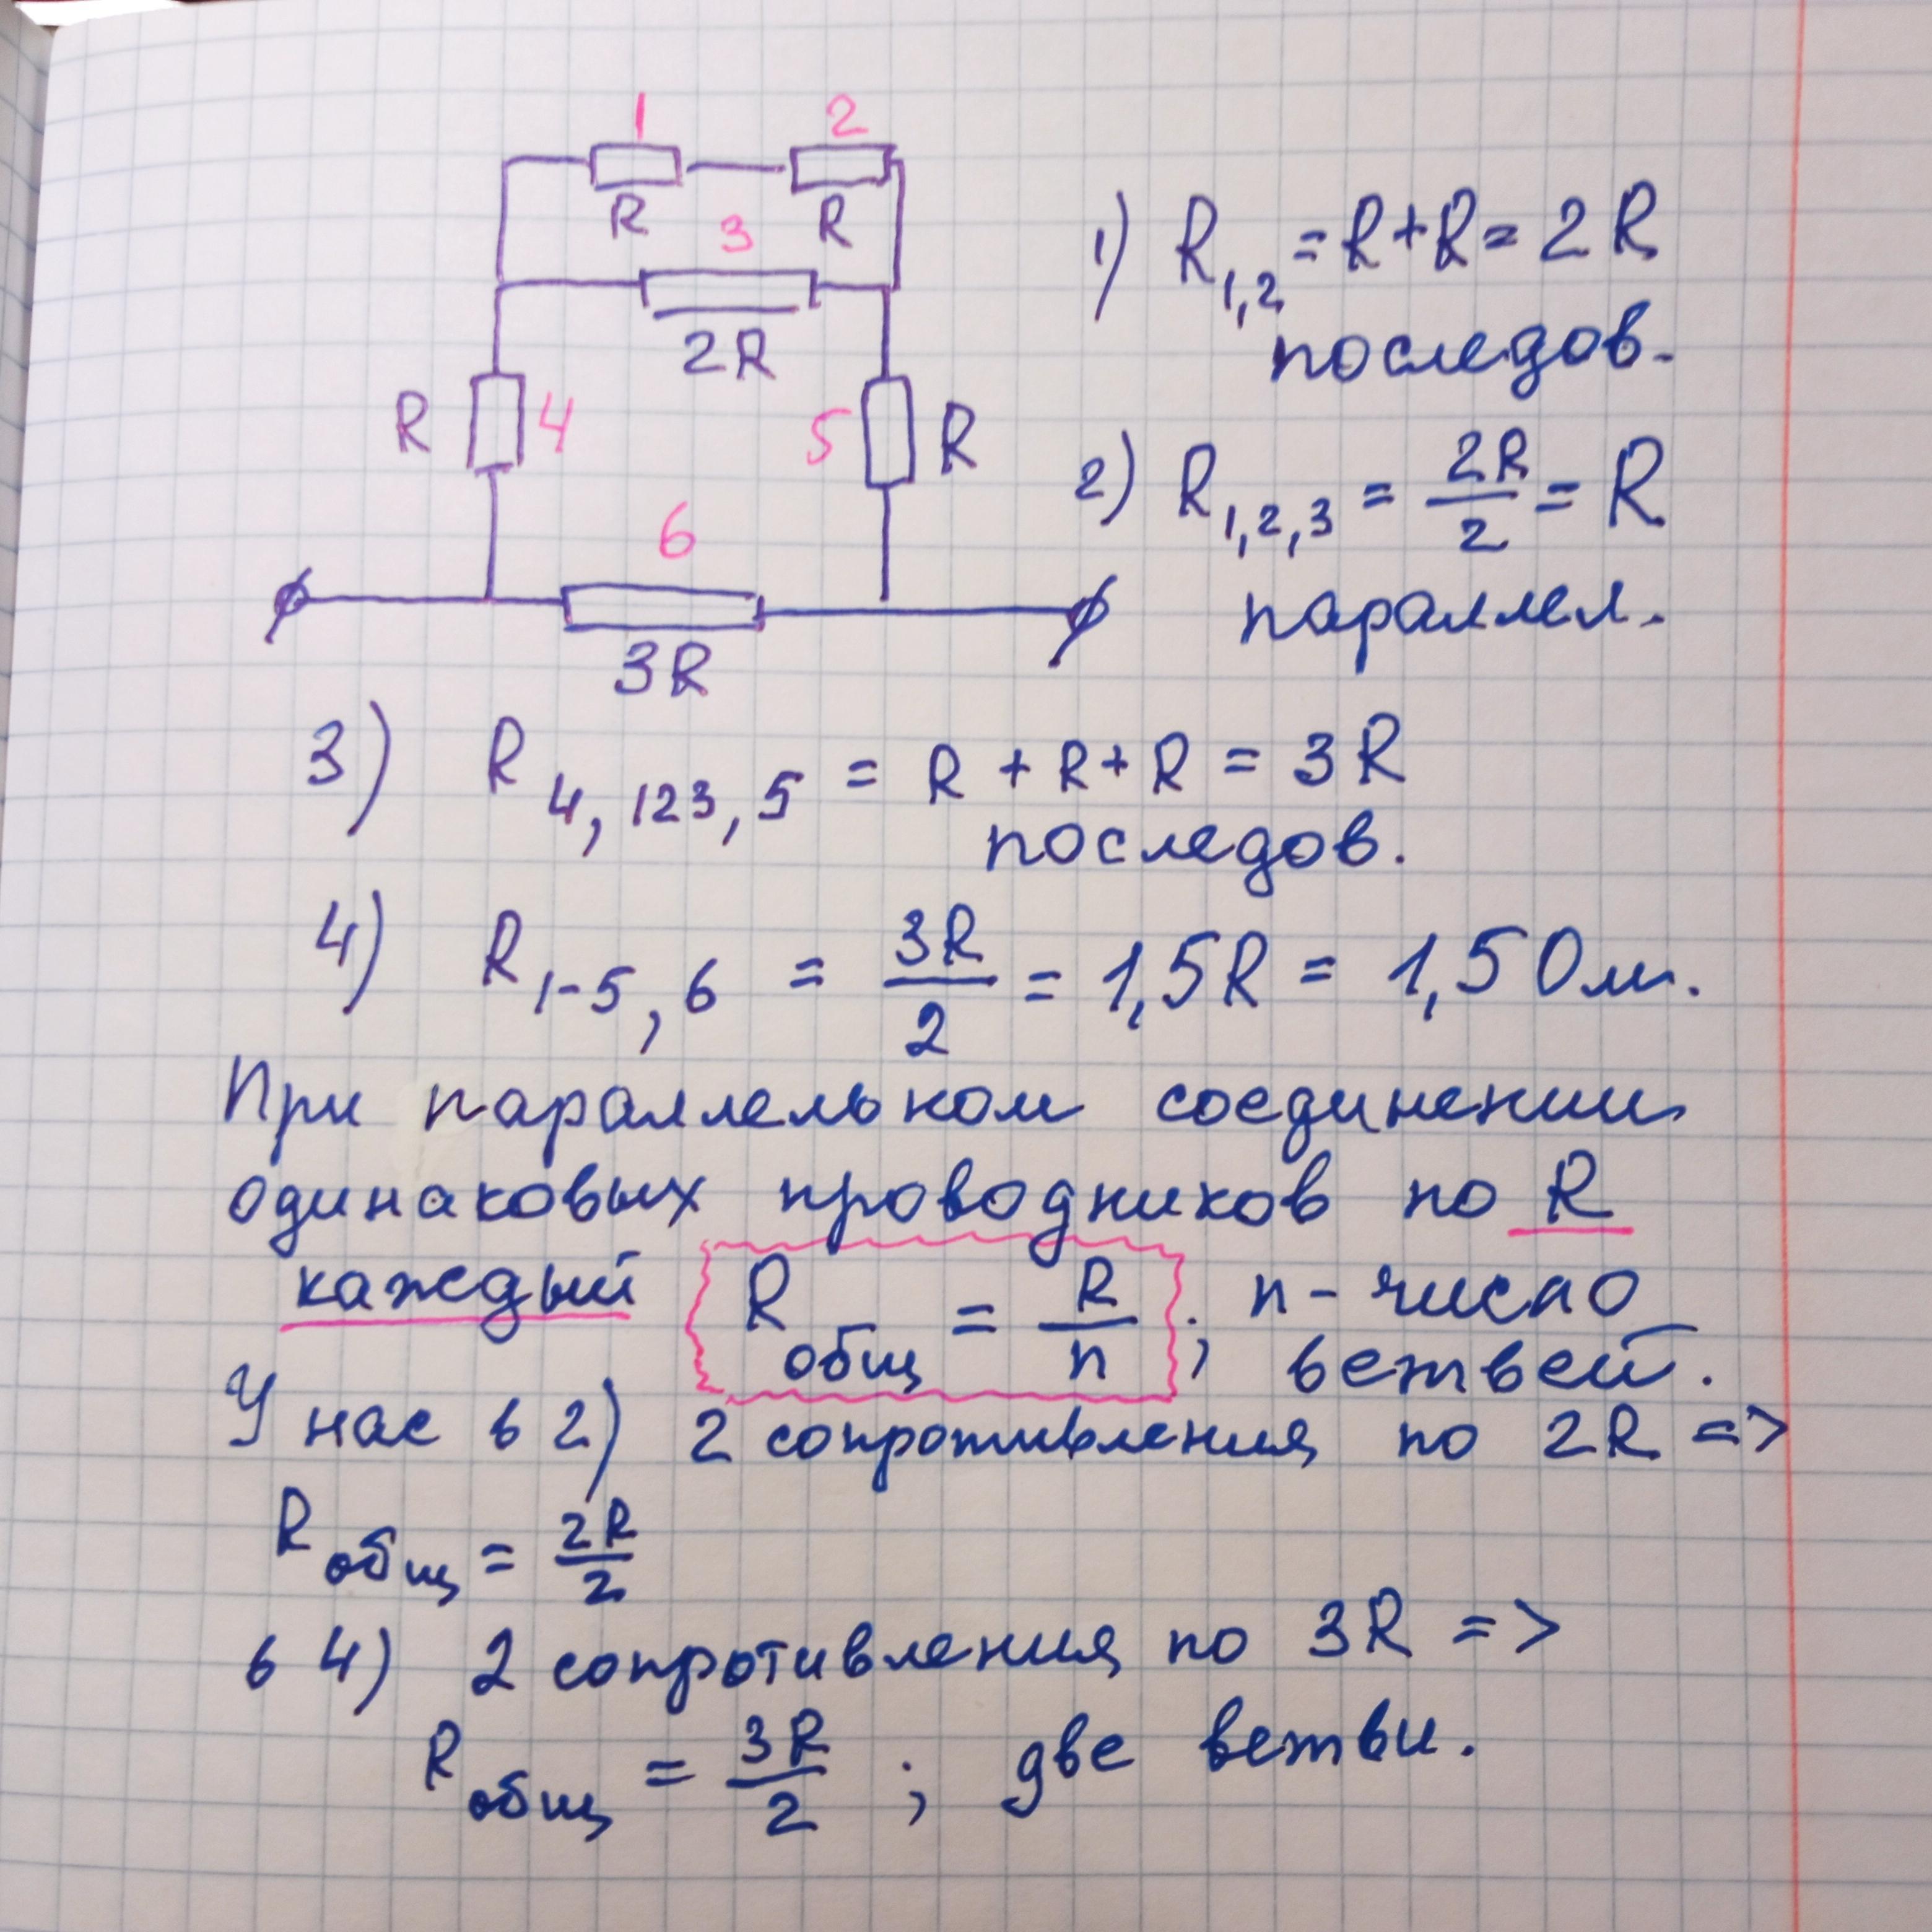 1 2
R 3 R
2R
R 4 5 R
6
3R
1) R1,2 = R+R = 2R
последов.
2) R1,2,3 = 2R/2 = R
параллел.
3) R4,123,5 = R + R + R = 3R
последов.
4) R1-5,6 = 3R/2 = 1,5R = 1,5 Ом.
При параллельном соединении
одинаковых проводников по R
каждый Rобщ = R/n ; n - число
ветвей.
У нас в 2) 2 сопротивления по 2R =>
Rобщ = 2R/2
в 4) 2 сопротивления по 3R =>
Rобщ = 3R/2 ; две ветви.